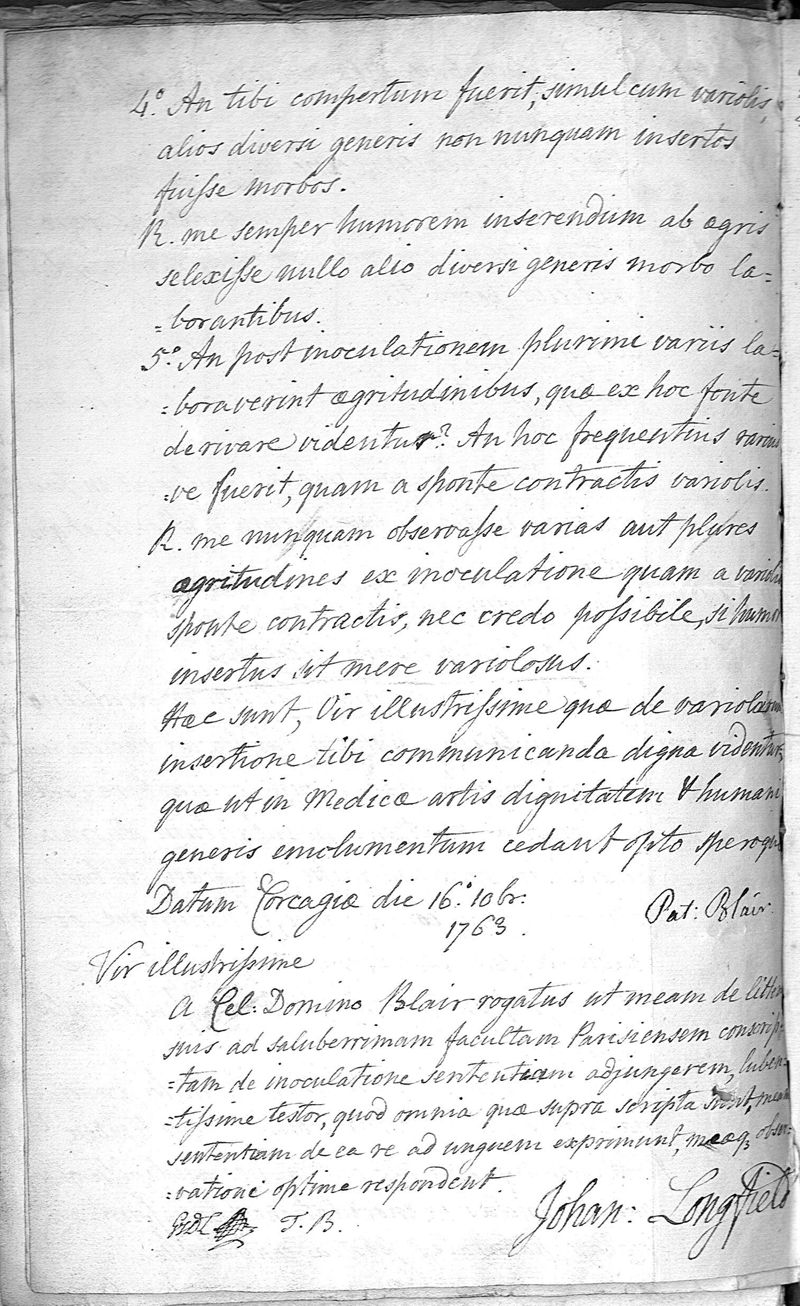 4.° An tibi compertum fuerit, simul cum variolis,
alios diversi generis non nunquam insertos
fuisse morbos.
R. me semper humorem inserendum ab ægris
selexisse nullo alio diversi generis morbo la=
=borantibus.
5.° An post inoculationem plurimi variis la=
=boraverint ægritudinibus, quæ ex hoc fonte
derivare videntur? An hoc frequentius rarius
=ve fuerit, quam a sponte contractis variolis.
R. me nunquam observasse varias aut plures
ægritudines ex inoculatione quam a variolis
sponte contractis, nec credo possibile, si humor
insertus sit mere variolosus.
Hæc sunt, Vir illustrissime quæ de variolarum
insertione tibi communicanda digna videntur,
quæ ut in Medicæ artis dignitatem & humani
generis emolumentum cedant opto speroque
Datum Corcagiæ die 16.° 10br:
1763.
Pat: Blair.
Vir illustrissime
A Cel: Domino Blair rogatus ut meam de litteris
suis ad saluberrimam facultam Parisiensem conscrip=
=tam de inoculatione sententiam adjungerem, luben=
=tissime testor, quod omnia quæ supra scripta sunt, meam
sententiam de ea re ad unguem exprimunt, meæq3 obser=
=vationi optime respondent.
Johan: Longfield
T. B.